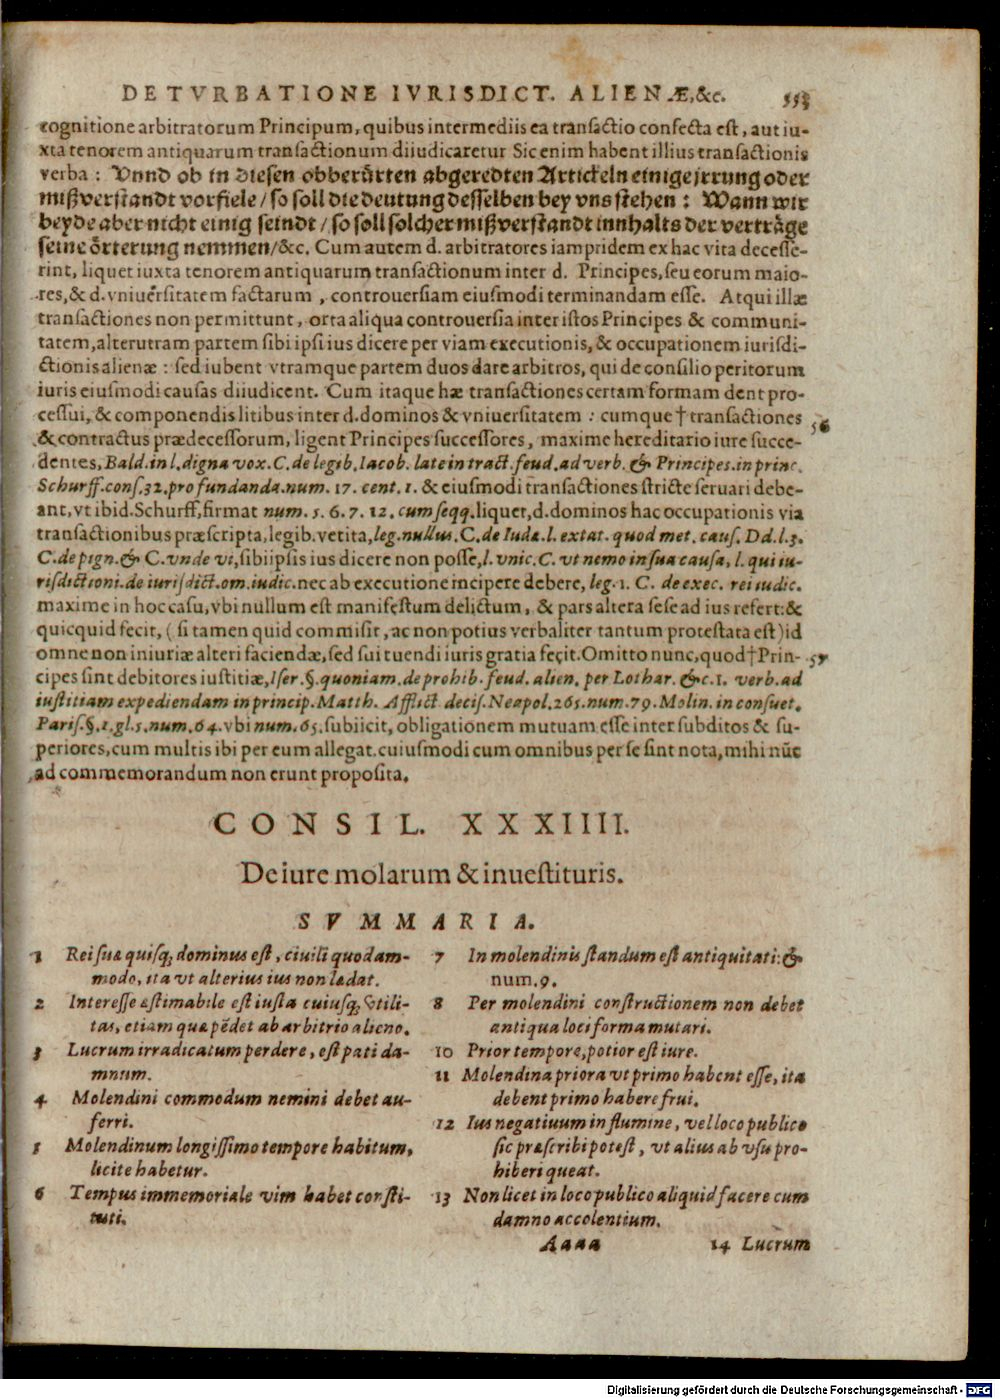 DE TVRBATIONE IVRISDICT. ALIENÆ, &c. 553
cognitione arbitratorum Principum, quibus intermediis ea transactio confecta est, aut iu-
xta tenorem antiquarum transactionum diiudicaretur Sic enim habent illius transactionis
verba: Vnnd ob in diesen obberürten abgeredten Artickeln einige jrrung oder
mißverstandt vorfiele / so soll die deutung desselben bey vns stehen: Wann wir
beyde aber nicht einig seindt / so soll solcher mißverstandt innhalts der verträge
seine örterung nemmen /&c. Cum autem d. arbitratores iampridem ex hac vita decesse-
rint, liquet iuxta tenorem antiquarum transactionum inter d. Principes, seu eorum maio-
res, & d. vniuersitatem factarum, controuersiam eiusmodi terminandam esse. Atqui illæ
transactiones non permittunt, orta aliqua controuersia inter istos Principes & communi-
tatem, alterutram partem sibi ipsi ius dicere per viam executionis, & occupationem iurisdi-
ctionis alienæ: sed iubent vtramque partem duos dare arbitros, qui de consilio peritorum
iuris eiusmodi causas diiudicent. Cum itaque hæ transactiones certam formam dent pro-
cessui, & componendis litibus inter d. dominos & vniuersitatem: cumque † transactiones 56
& contractus prædecessorum, ligent Principes successores, maxime hereditario iure succe-
dentes, Bald. in l. digna vox. C. de legib. Iacob. late in tract. feud. ad verb. & Principes. in princ.
Schurff. cons. 32. pro fundanda. num. 17. cent. 1. & eiusmodi transactiones stricte seruari debe-
ant, vt ibid. Schurff, firmat num. 5. 6. 7. 12. cum seqq. liquet, d. dominos hac occupationis via
transactionibus præscripta, legib. vetita, leg. nullus. C. de Iudæ. l. extat. quod met. caus. Dd. l. 3.
C. de pign. & C. vnde vi, sibi ipsis ius dicere non posse, l. vnic. C. vt nemo in sua causa, l. qui iu-
risdictioni. de iurisdict. om. iudic. nec ab executione incipere debere, leg. 1. C. de exec. rei iudic.
maxime in hoc casu, vbi nullum est manifestum delictum, & pars altera sese ad ius refert: &
quicquid fecit, (si tamen quid commisit, ac non potius verbaliter tantum protestata est) id
omne non iniuriæ alteri faciendæ, sed sui tuendi iuris gratia fecit. Omitto nunc, quod † Prin- 57
cipes sint debitores iustitiæ, Iser. §. quoniam. de prohib. feud. alien. per Lothar. & c. 1. verb. ad
iustitiam expediendam in princip. Matth. Afflict. decis. Neapol. 265. num. 79. Molin. in consuet.
Paris. §. 1. gl. 5. num. 64. vbi num. 65. subiicit, obligationem mutuam esse inter subditos & su-
periores, cum multis ibi per eum allegat. cuiusmodi cum omnibus per se sint nota, mihi nūc
ad commemorandum non erunt proposita.
CONSIL. XXXIIII.
De iure molarum & inuestituris.
SVMMARIA.
1 Rei suæ quisq; dominus est, ciuili quodam-
modo, ita vt alterius ius non lædat.
2 Interesse æstimabile est iusta cuiusq; vtili-
tas, etiam quæ pēdet ab arbitrio alieno.
3 Lucrum irradicatum perdere, est pati da-
mnum.
4 Molendini commodum nemini debet au-
ferri.
5 Molendinum longissimo tempore habitum,
licite habetur.
6 Tempus immemoriale vim habet consti-
tuti.
7 In molendinis standum est antiquitati: &
num. 9.
8 Per molendini constructionem non debet
antiqua loci forma mutari.
10 Prior tempore, potior est iure.
11 Molendina priora vt primo habent esse, ita
debent primo habere frui.
12 Ius negatiuum in flumine, vel loco publico
sic præscribi potest, vt alius ab vsu pro-
hiberi queat.
13 Non licet in loco publico aliquid facere cum
damno accolentium.
Aaaa 14 Lucrum
Digitalisierung gefördert durch die Deutsche Forschungsgemeinschaft - DFG